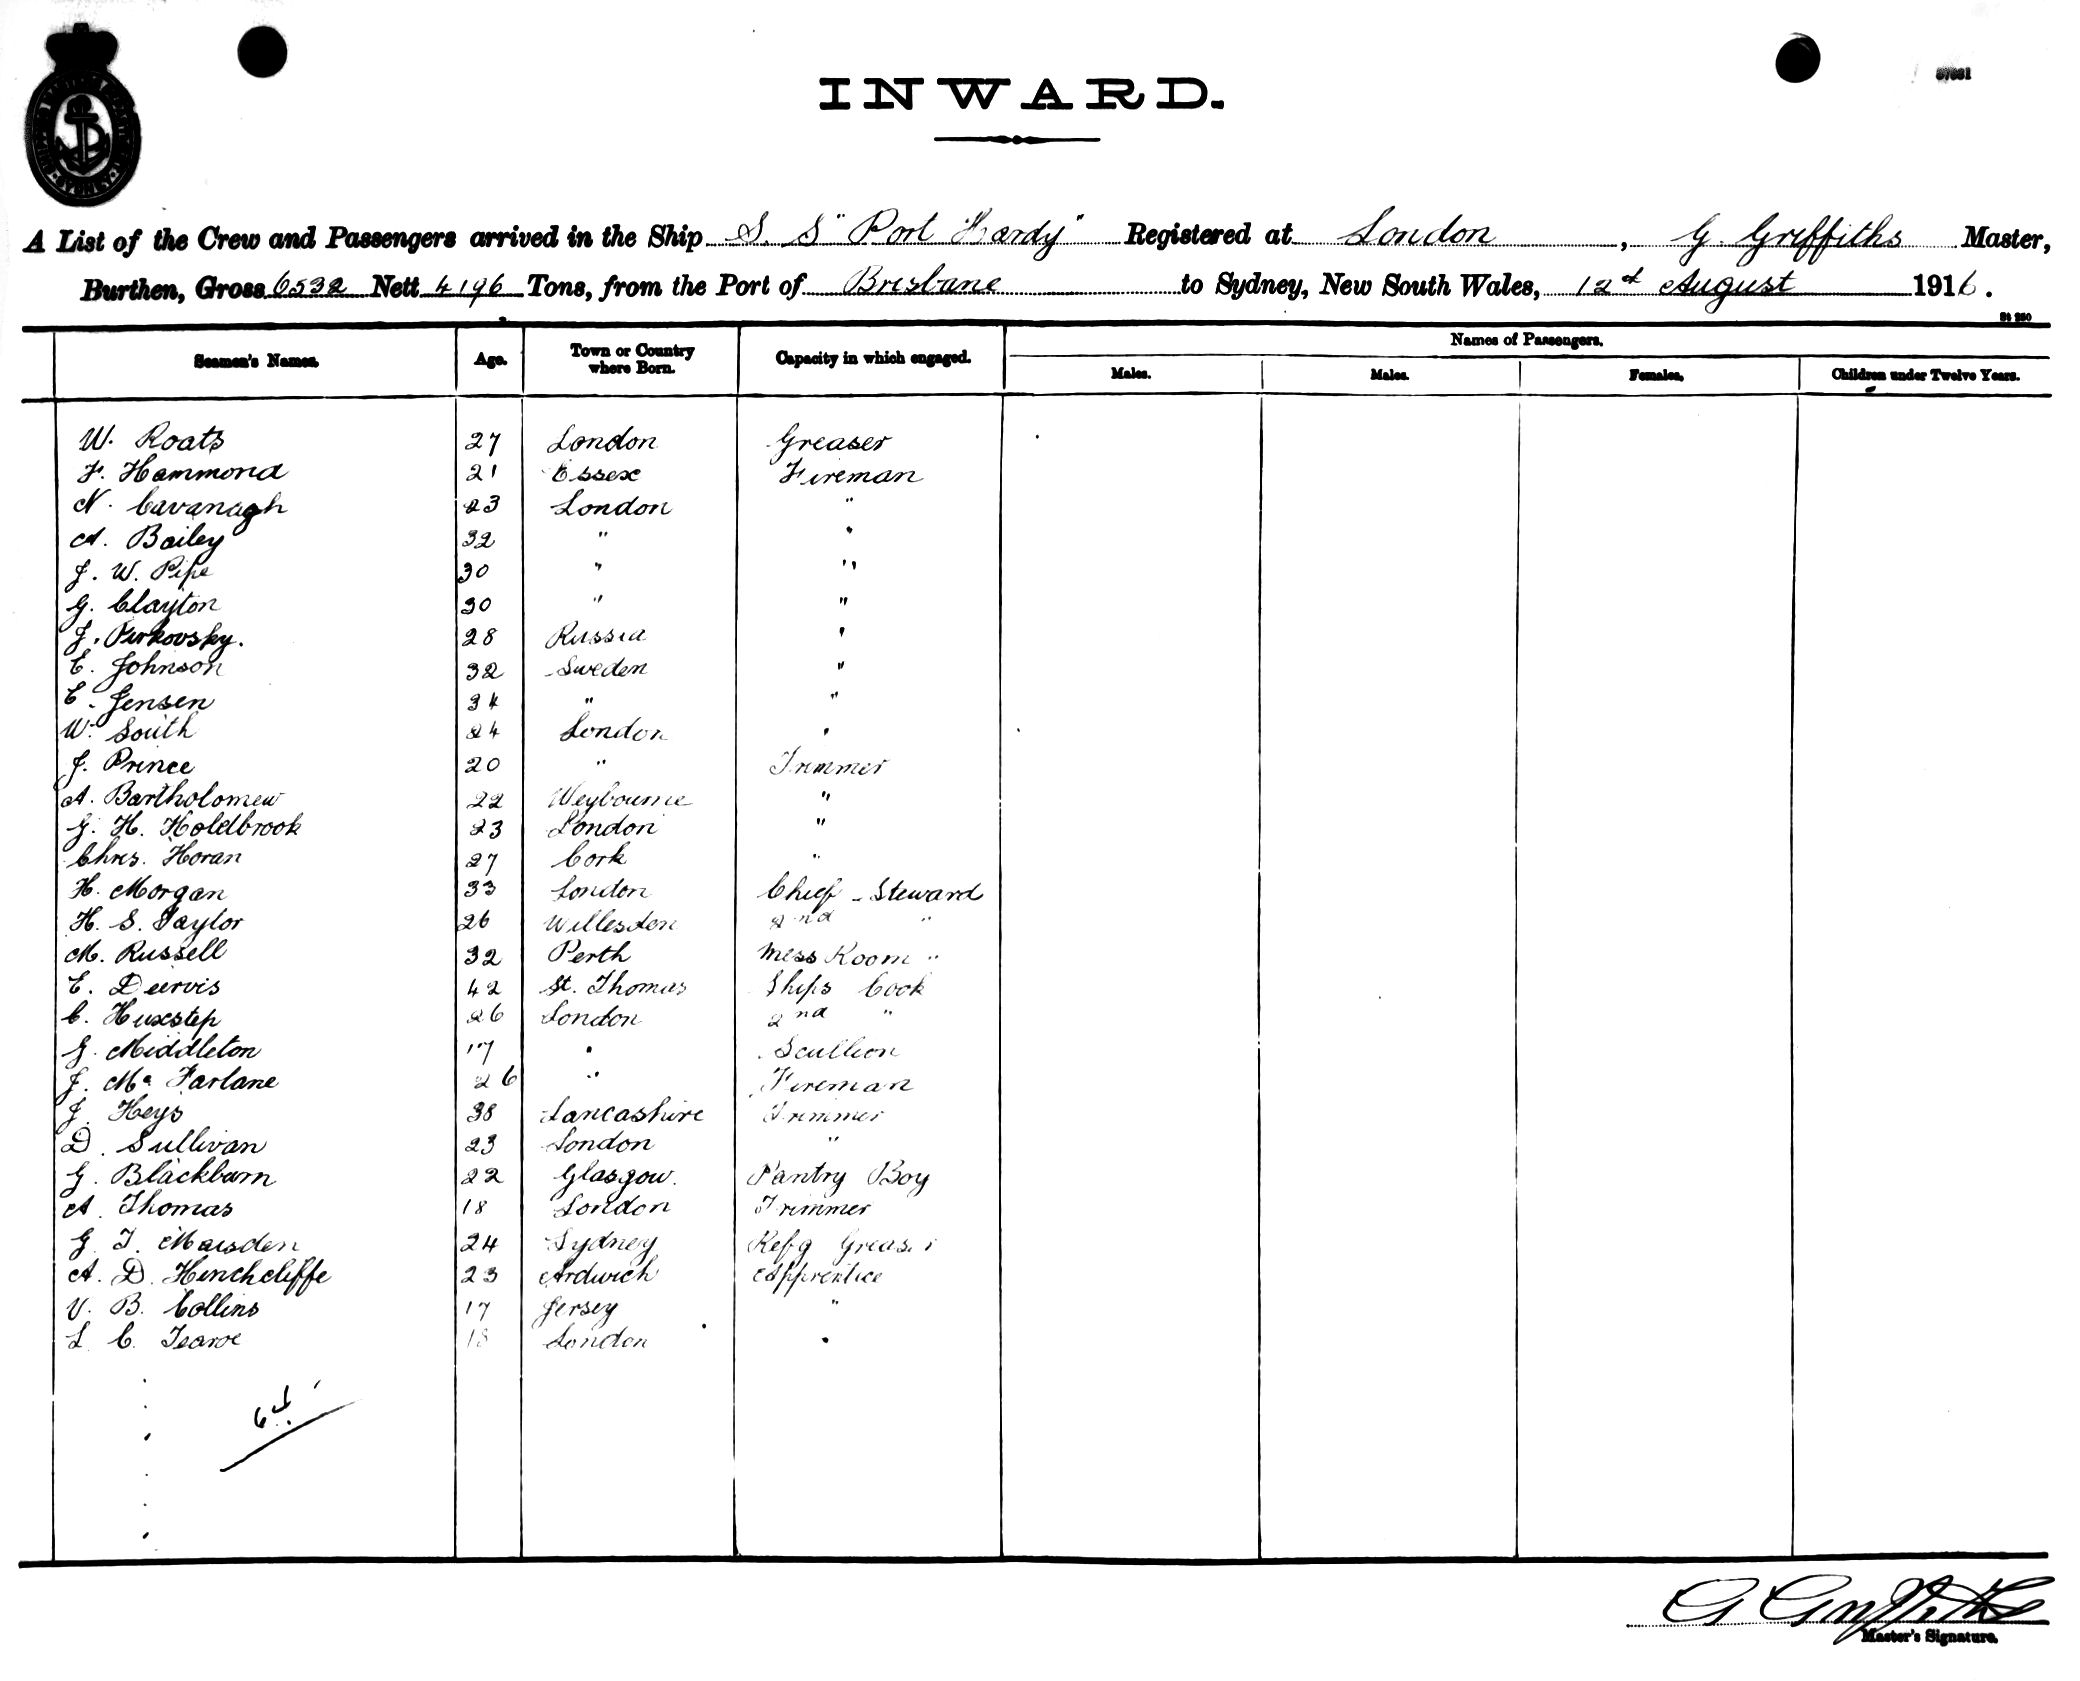 INWARD.
A List of the Crew and Passengers arrived in the Ship S. S "Port Hardy" Registered at London, G. Griffiths Master,
Burthen, Gross 6532 Nett 4196 Tons, from the Port of Brisbane to Sydney, New South Wales, 12d August 1916.
Names of Passengers.
Seamen's Names. Age. Town or Country where Born. Capacity in which engaged. Males. Males. Females. Children under Twelve Years.
W. Roats 27 London Greaser
F. Hammond 21 Essex Fireman
N. Cavanagh 23 London "
A. Bailey 32 " "
J. W. Pipe 30 " "
G. Clayton 30 " "
J. Pirkovsky. 28 Russia "
E. Johnson 32 Sweden "
E. Jensen 34 " "
W. South 24 London "
J. Prince 20 " Trimmer
A. Bartholomew 22 Weybourne "
G. H. Holdbrook 23 London "
Chris. Horan 27 Cork "
H. Morgan 33 London Chief Steward
H. S. Taylor 26 Willesden 2nd "
M. Russell 32 Perth Mess Room "
E. Duirvis 42 St. Thomas Ships Cook
C. Huxstep 26 London 2nd "
G. Middleton 17 " Scullion
J. Mc Farlane 26 " Fireman
J. Heys 38 Lancashire Trimmer
D. Sullivan 23 London "
G. Blackburn 22 Glasgow. Pantry Boy
A. Thomas 18 London Trimmer
G. T. Marsden 24 Sydney Refg Greaser
A. D. Hinchcliffe 23 Ardwich Apprentice
V. B. Collins 17 Jersey "
L. C. Tearoe 18 London "
G Griffiths
Master's Signature.